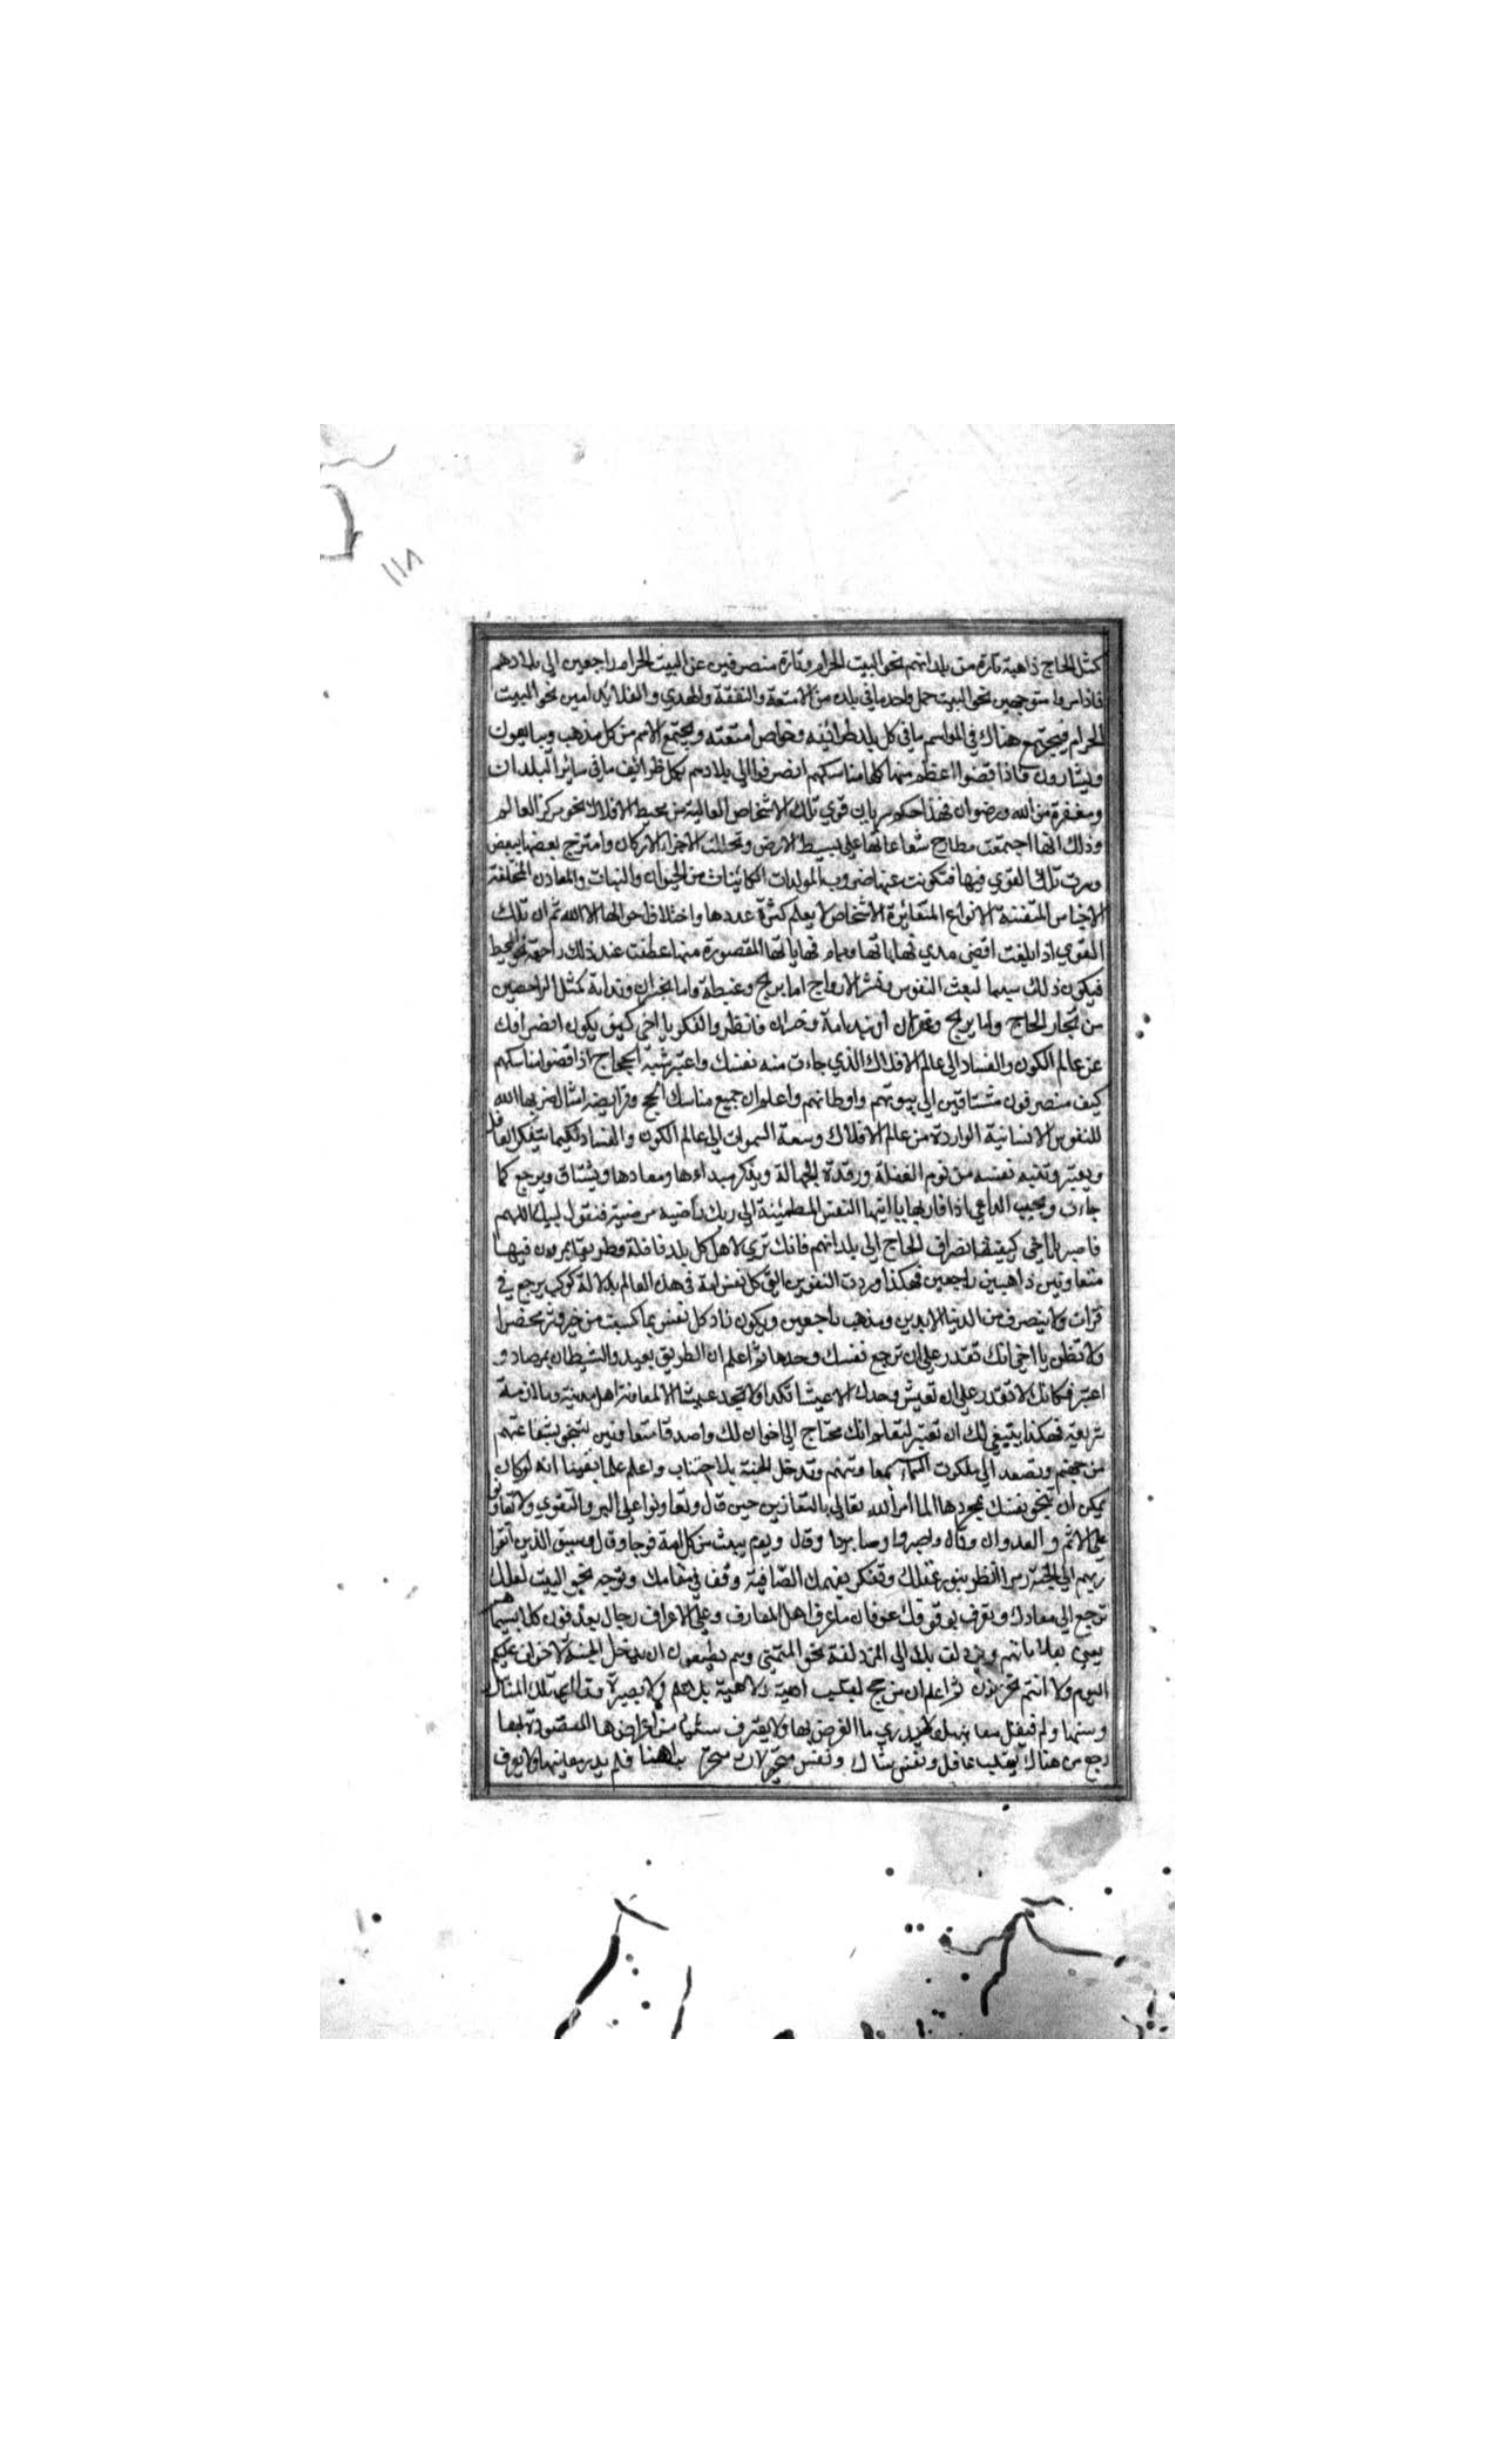 ١١٨
كمثل الحاج ذاهبة تارة من بلدانهم نحو البيت الحرام وتارة منصرفين عن البيت الحرام راجعين الي بلادهم
فاذا سروا متوجهين نحو البيت حمل واحد ما في بلده من الامتعة والنفقة والهدي والقلايد امين نحو البيت
الحرام فيجتمع هناك في المواسم ما في كل بلد طرائفه وخواص امتعته ويجتمع الامم من كل مذهب ويبايعون
ويشارون فاذا قضوا اعظم منها كلها مناسكهم انصرفوا الي بلادهم بكل ظرائف ما في ساير البلدان
ومغفرة من الله ورضوان فهذا حكم سريان قوي تلك الاشخاص العالية من محيط الافلاك نحو مركز العالم
وذلك انها اجتمعت مطارح شعاعاتها علي بسيط الارض وتخللت الاجزاء الاركان وامتزج بعضها ببعض
وسرت تلك القوي فيها فتكونت عنها ضروب المولدات الكائينات من الحيوان والنبات والمعادن المختلفة
الاجناس المتفننة الانواع المتغائرة الاشخاص لا يعلم كثرة عددها واختلاف احوالها الا الله ثم ان تلك
القوي اذا بلغت اقصي مدي نهاياتها وتمام نهاياتها المقصورة منها عطفت عند ذلك راجعة نحو المحيط
فيكون ذلك سببا لبعث النفوس ونشر الارواح اما بربح وغبطة واما بخسران وندامة كمثل الراجعين
من تجار الحاج واما بربح وغفران او بندامة وخسران فانظر والفكر يا اخي كيف يكون انصرافك
عن عالم الكون والفساد الي عالم الافلاك الذي جاءت منه نفسك واعتبر شبه الحجاج اذا قضوا مناسكهم
كيف منصرفون مشتاقين الي بيوتهم واوطانهم واعلم ان جميع مناسك الحج وفرايضه امثال ضربها الله
للنفوس الانسانية الواردة من عالم الافلاك وسعة السموات الي عالم الكون والفساد لكيما يتفكر العاقل
ويعتبر وتنبه نفسه من نوم الغفلة ورقدة الجهالة ويذكر مبداءها ومعادها ويشتاق ويرجع كما
جاءت ويجيب الداعي اذا يا ايتها النفس المطمئنة الي ربك راضيه مرضية فتقول لبيك اللهم
فاصبر يا اخي كيفية انصراف الحاج الي بلدانهم فانك تري لاهل كل بلد قافلة وطريقا يمرون فيها
متعاونين ذاهبين راجعين فهكذا وردت النفوس كل نفس امة في هذا العالم بدلالة كوكب يرجع في
قرات ولا ينصرف من الدنيا الا بدين ومذهب راجعين ويكون زاد كل نفس بما كسبت من خير وشر محضرا
ولا تظن يا اخي انك تقدر علي ان ترجع نفسك وحدها ثم اعلم ان الطريق بعيد والشيطان بمرصاد و
اعتبر فكانك لا تقدر علي ان تعيش وحدك الا عيشا نكدا ولا تجد عيشا الا لمعاونة اهل مدينة وملازمة
شريعة فهكذا ينبغي لك ان تعتبر لتعلم انك محتاج الي اخوان لك واصدقا متعاونين لتنجو بشفاعتهم
من جهنم وتصعد الي ملكوت السماء وتدخل الجنة بلا واعلم علما يقينا انه لو كان
يمكن ان تنجو نفسك بمجردها لما امر الله تعالي بالتعاون حين قال وتعاونوا علي البر والتقوي ولا تعاونوا
علي الاثم والعدوان وقال واصبروا وصابروا وقال ويوم يبعث من كل امة فوجا وقال وسيق الذين اتقوا
ربهم الي الجنة زمرا انظر بنور عقلك وتفكر بفهمك الصافية وقف في مقامك وتوجه نحو البيت لعلك
ترجع الي معادك وتعرف بوقوفك عرفان ما عرف اهل المعارف وعلي الاعراف رجال يعرفون كلا بسيماهم
يعني بعلاماتهم الي المزدلفة نحو المتمني وهم يطمعون ان يدخل الجنة لا خوف عليكم
اليوم ولا انتم تحزنون ثم اعلم ان من حج بقلب لاهية بلا علم ولا بصيرة المناسك
وسننها ولم لا يدري ما الغرض بها ولا يعترف من اغراضها المقصودة بها
رجع من هناك بقلب غافل ونفس شاك ونفس متحير فلم ولا يعرف